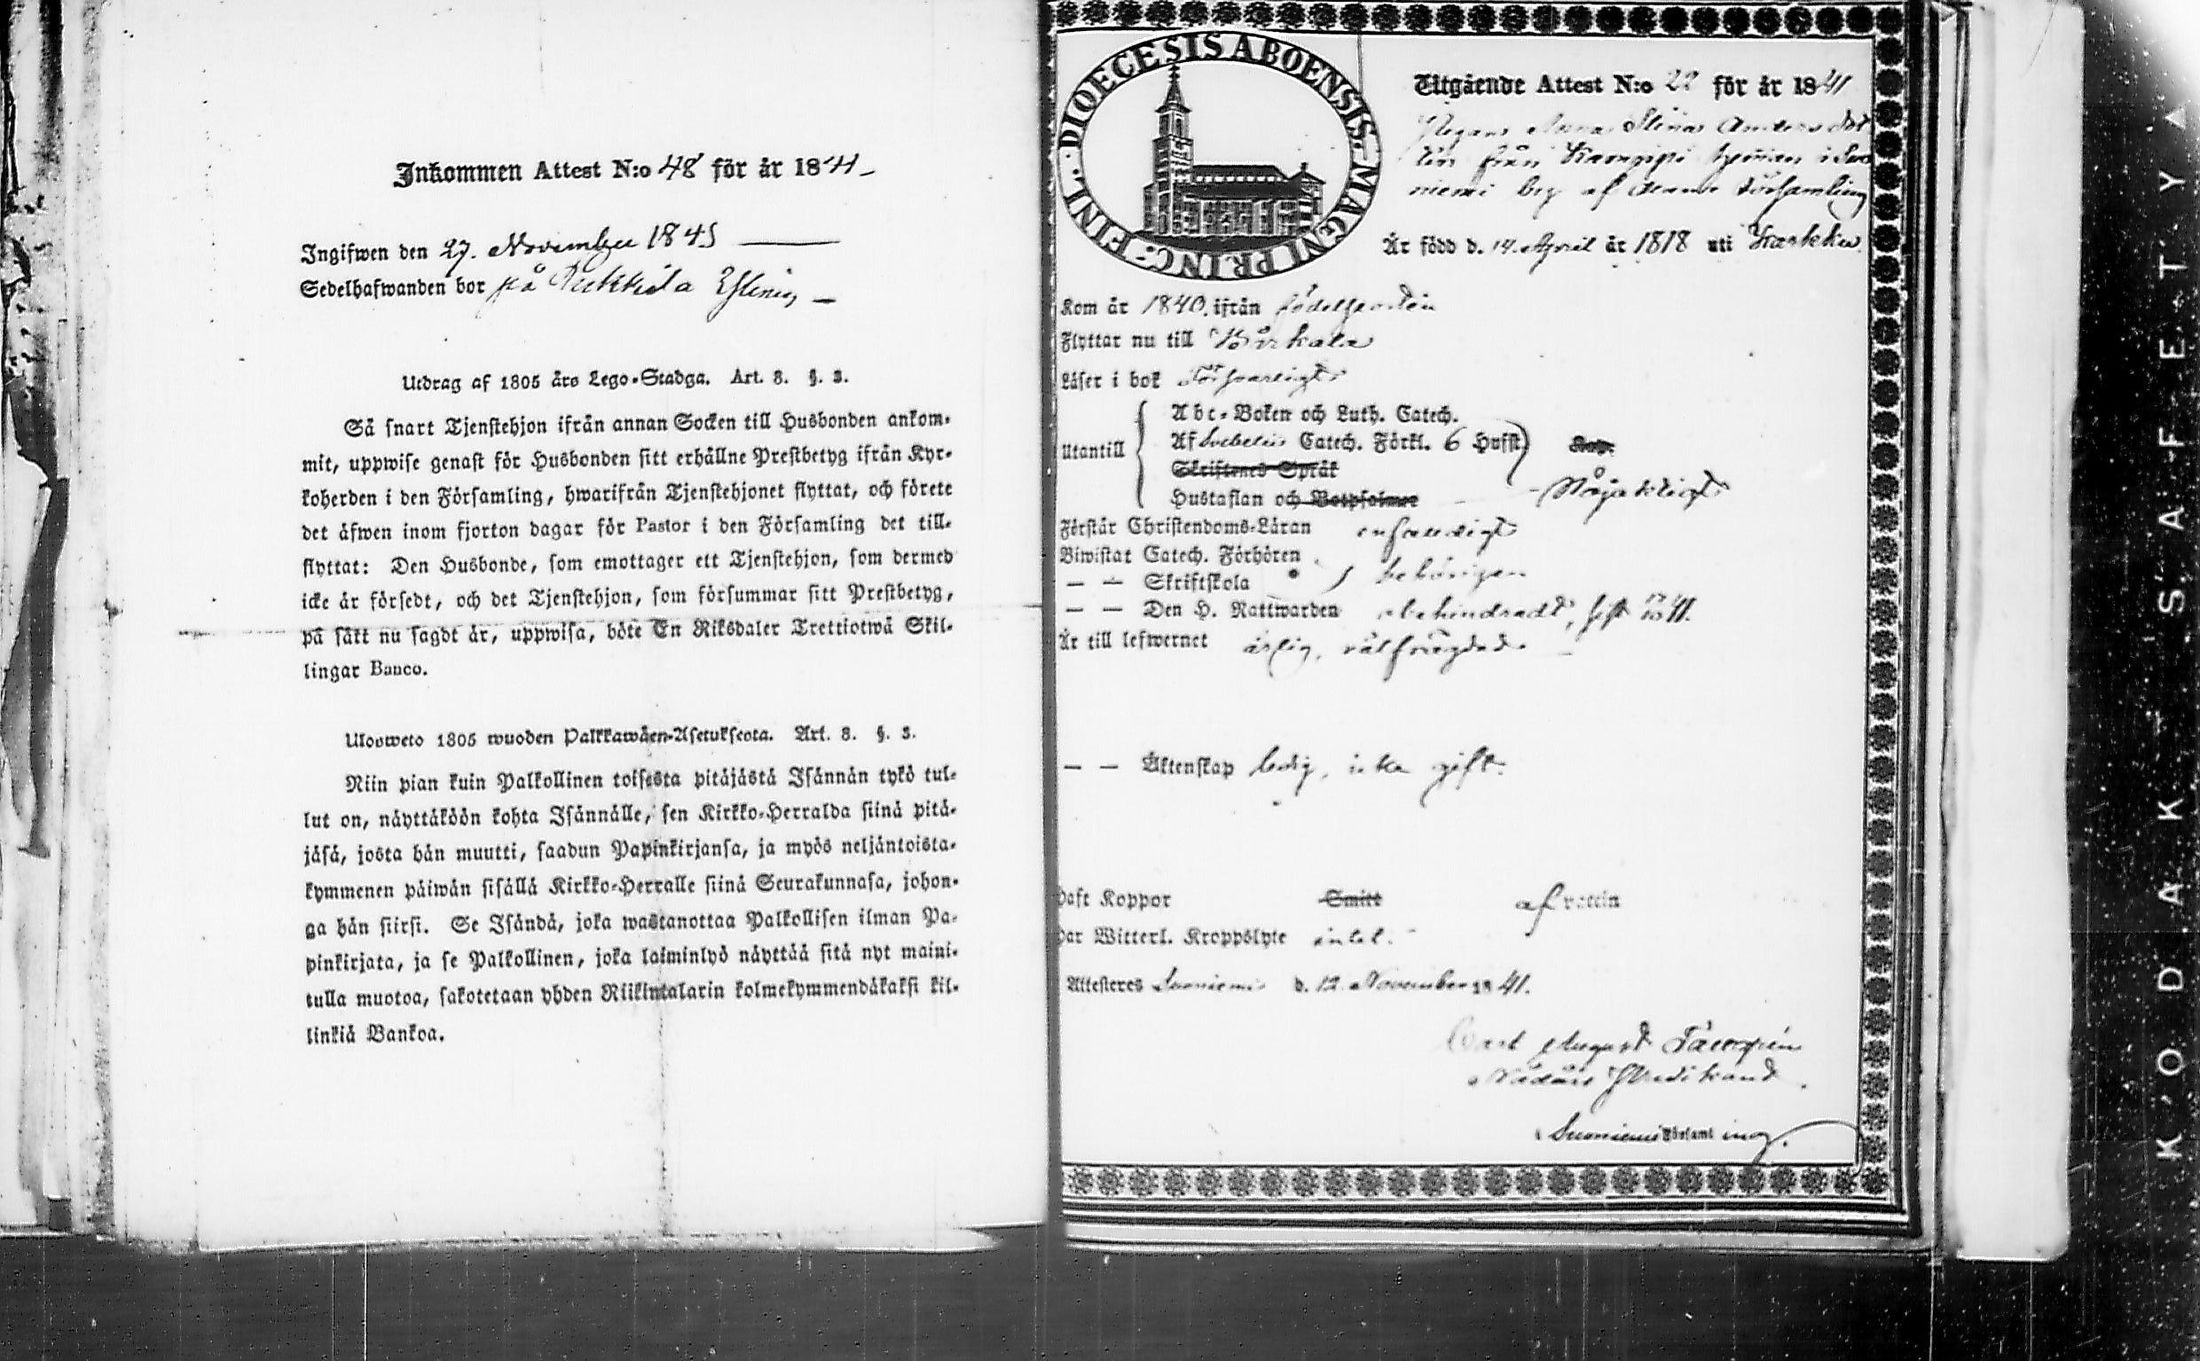 Inkommen Attest N:o 48 för år 1841
Ingifwen den 27. November 1841
Sedelhafwanden bor på
Utdrag af 1805 års Lego-Stadga. Art. 8. §. 3.
Så snart Tjenstehjon ifrån annan Socken till Husbonden ankom-
mit, uppwise genast för Husbonden sitt erhållne Prestbetyg ifrån Kyr-
koherden i den Församling, hwarifrån Tjenstehjonet flyttat, och förete
det äfwen inom fjorton dagar för Pastor i den Församling det till-
flyttat: Den Husbonde, som emottager ett Tjenstehjon, som dermed
icke är försedt, och det Tjenstehjon, som försummar sitt Prestbetyg,
på sätt nu sagdt är, uppwisa, böte En Riksdaler Trettiotwå Skil-
lingar Banco.
Ulosweto 1805 wuoden Palkkawäen-Asetuksesta. Art. 8. §. 3.
Niin pian kuin Palkollinen toisesta pitäjästä Isännän tykö tul-
lut on, näyttäköön kohta Isännälle, sen Kirkko-Herralda siinä pitä-
jäsä, josta hän muutti, saadun Papinkirjansa, ja myös neljäntoista-
kymmenen päiwän sisällä Kirkko-Herralle siinä Seurakunnasa, johon-
ga hän siirsi. Se Isändä, joka wastanottaa Palkollisen ilman Pa-
pinkirjata, ja se Palkollinen, joka laiminlyö näyttää sitä nyt maini-
tulla muotoa, sakotetaan yhden Riikintalarin kolmekymmendäkaksi kil-
linkiä Bankoa.
DIOECESIS ABOENSIS MAGNI PRINC. FINL.
Utgående Attest N:o 22 för år 1841
Pigan Anna Stina Anders dot
ter från i Suo
niemi by af denna Församling
Är född d. 14. April år 1818 uti Karkku
Kom år 1840. ifrån födelseorten
Flyttar nu till Birkala
Läser i bok Försvarligt
Utantill
Abc-Boken och Luth. Catech.
Af Svebelii Catech. Förkl. 6 Hufst
Skriftenes Språk
Hustaflan och Botpsalmer Nöjaktigt
Förstår Christendoms-Läran enfaldigt
Biwistat Catech. Förhören
— — Skriftskola behörigen
— — Den H. Nattwarden obehindradt,
Är till lefwernet ärlig, välfrägdad.
— — Äktenskap ledig, icke gift.
Haft Koppor Smitt af naturen
Har Witterl. Kroppslyte intet.
Attesteras Suoniemi d. 12 November 1841.
Carl August
Suoniemi Församl ing.
KODAK SAFETY